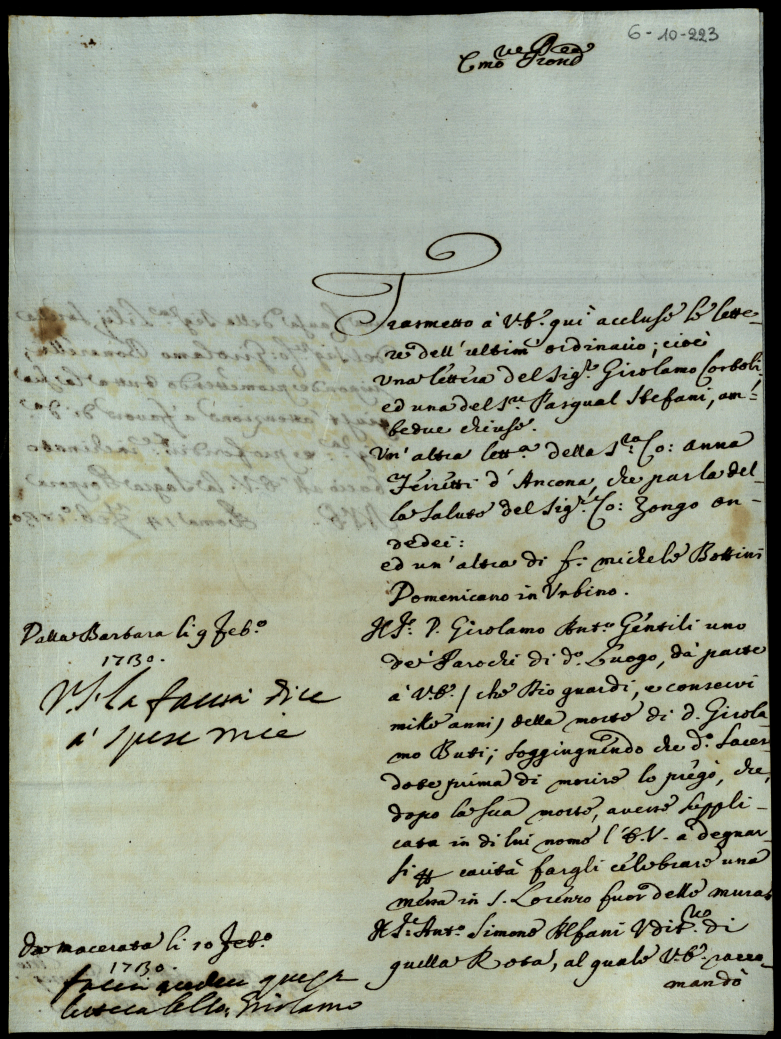 6-10-223
Em̃o e Rev̄mo Pron̄e
Trasmetto à V.E. qui accluse le lette-
re dell'ultimo ordinario; cioè
Una lettera del Sig.re Girolamo Corboli,
ed una del Sr. Pasqual Stefani, am-
bedue chiuse.
Un'altra lett.a della S.ra Co: Anna
Ferretti d'Ancona, che parla del-
la salute del Sig.r Co: Zongo On-
dedei:
ed un'altra di f. Michele Bottini
Domenicano in Urbino.
Dalla Barbara li 9 Feb.o
1730.
Il Sr. D. Girolamo Ant.o Gentili uno
de' Parochi di d.o Luogo, dà parte
à V.E. / che Dio guardi, e conservi
mille anni / della morte di D. Girola-
mo Buti; soggiungnendo che d.o Sacer-
dote prima di morire lo pregò, che,
dopo la sua morte, avesse suppli-
cata in di lui nome l'E.V. a degnar-
si per carità fargli celebrare una
messa in S. Lorenzo fuor delle mura
V.S. la faccia dire
a' spese mie
Da Macerata li 10 Feb.o
1730.
Il Sr. Ant.o Simone Alfani Udit.re di
quella Rota, al quale V.E. racco-
mandò
faccia vedere questa
lettera allo, Girolamo